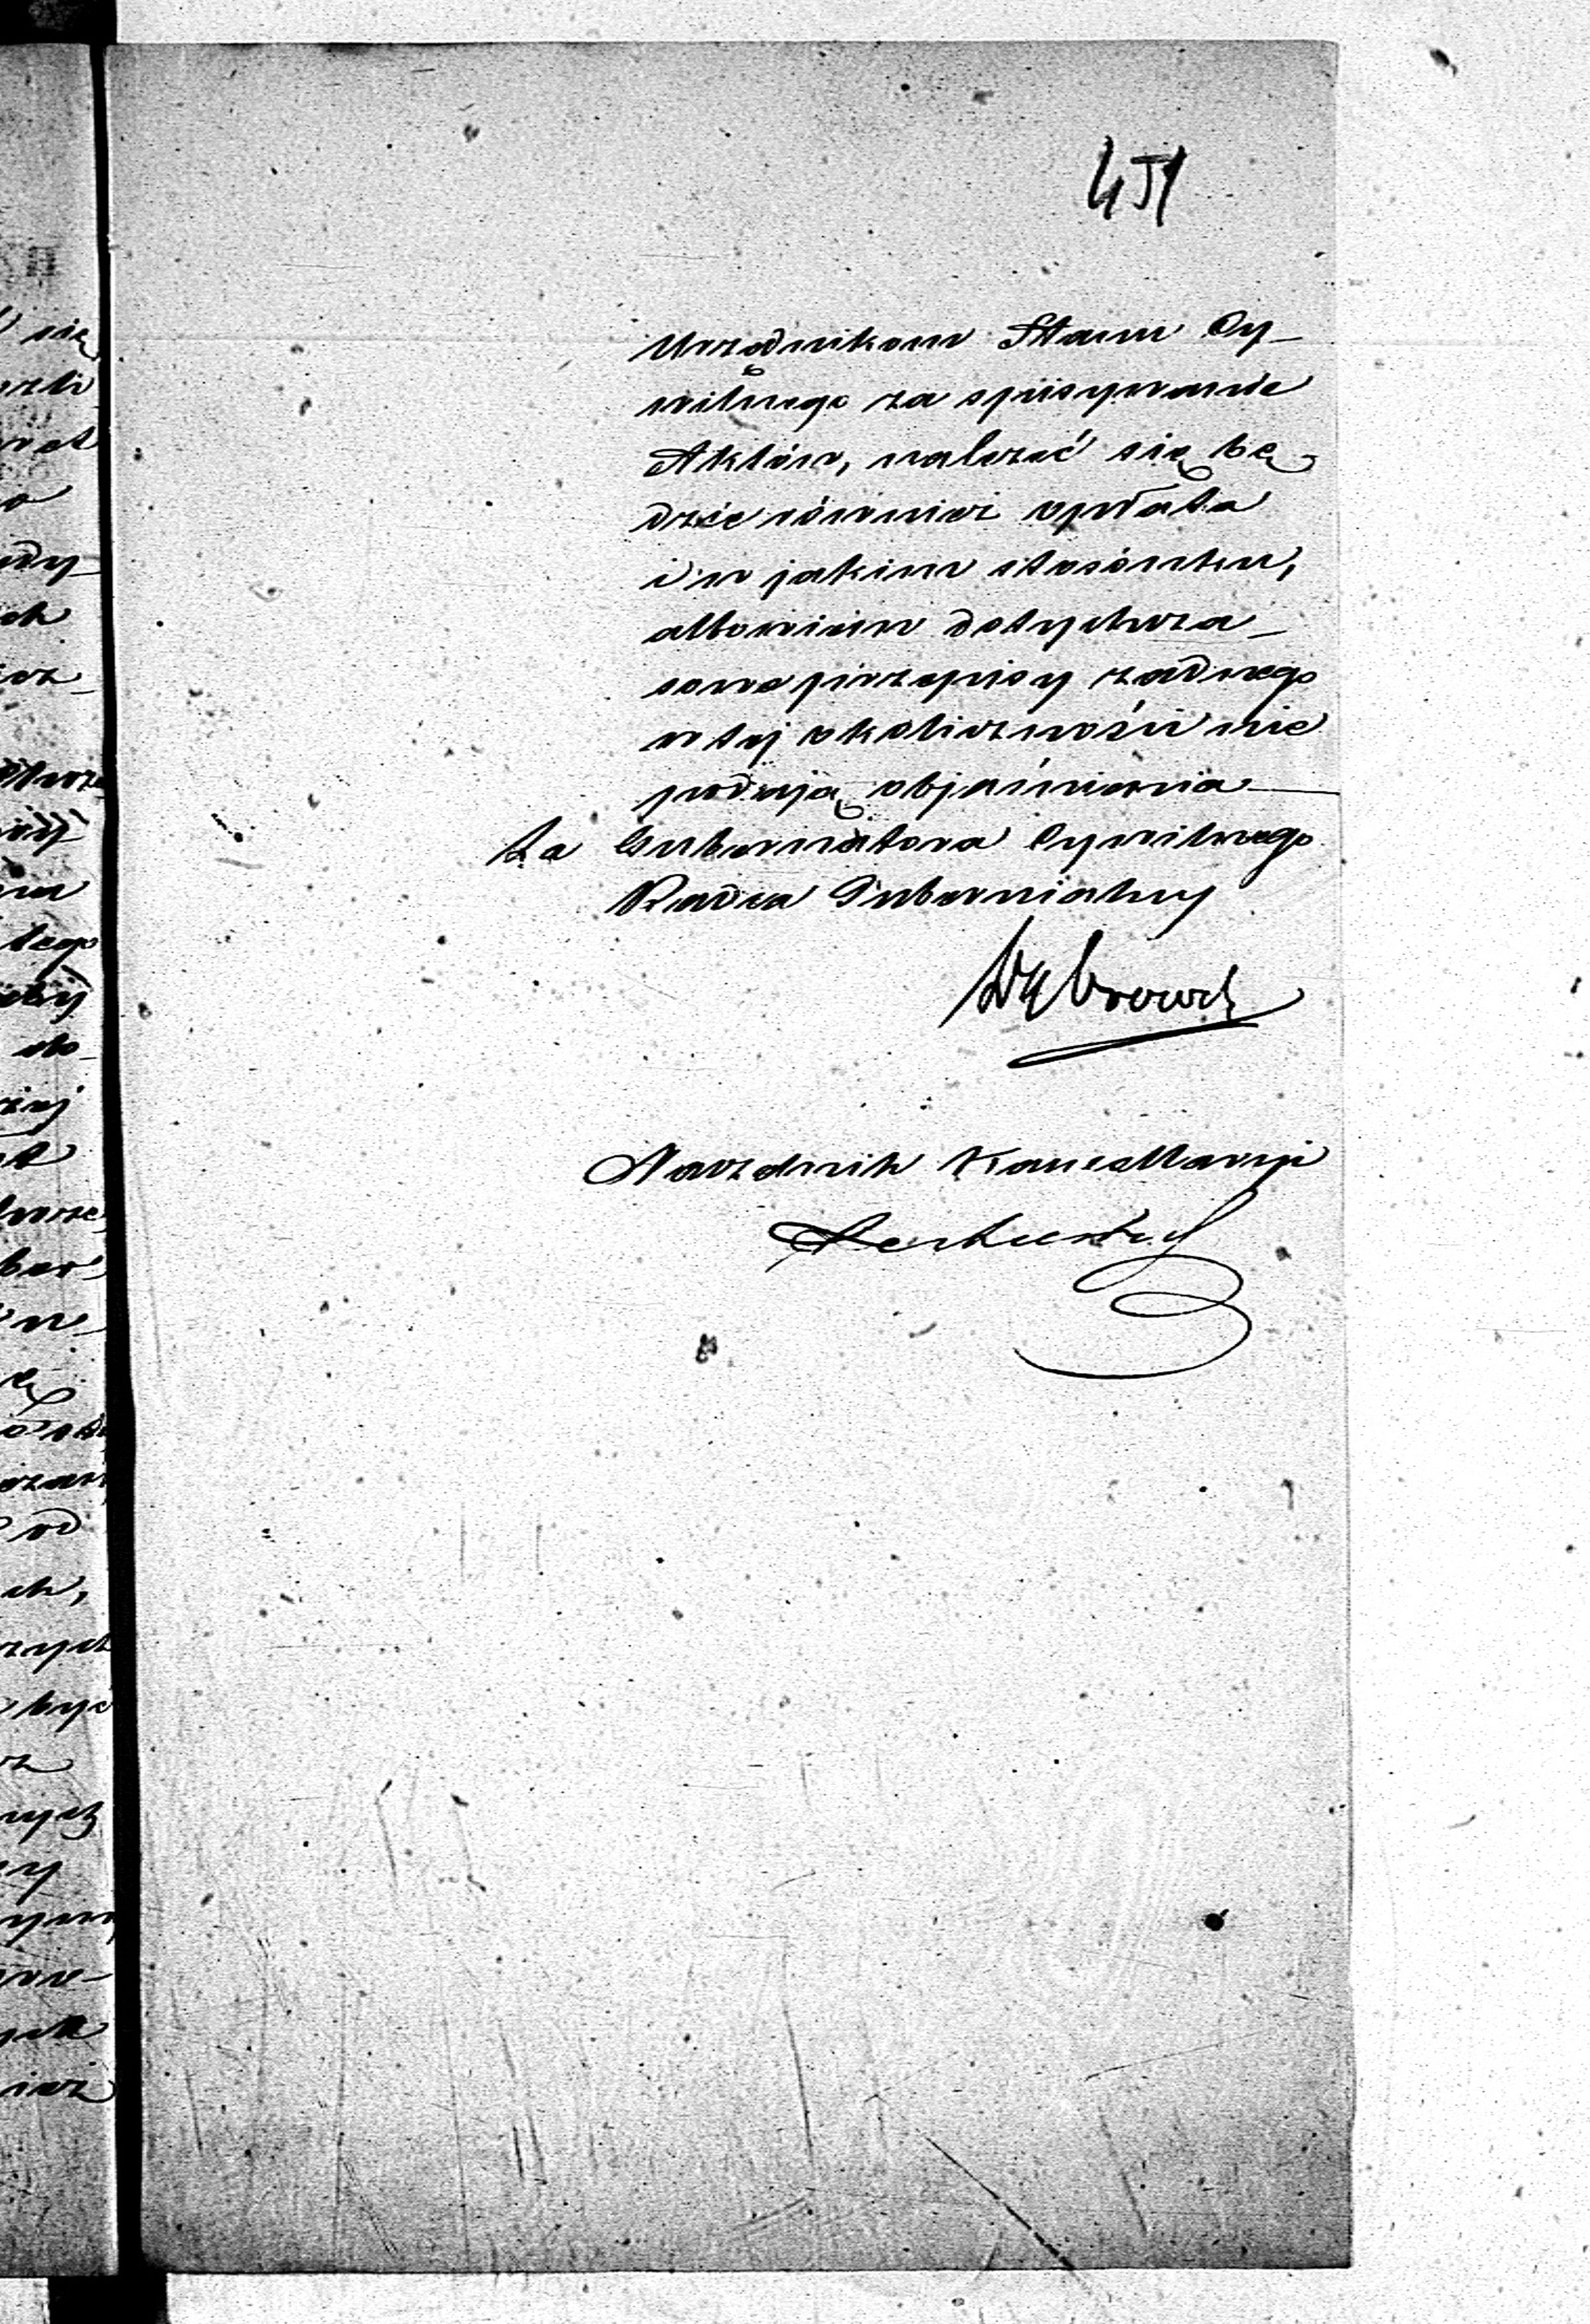 451
Urzędnikom Stanu Cy-
wilnego za spisywanie
Aktów, należeć się bę
dzie również opłata
i w jakim stosónku,
albowiem dotychcza-
sowe przepisy żadnego
w tej okoliczności nie
podają objaśnienia
Za Gubernatora Cywilnego
Radca Gubernialny
Naczelnik Kancellaryi